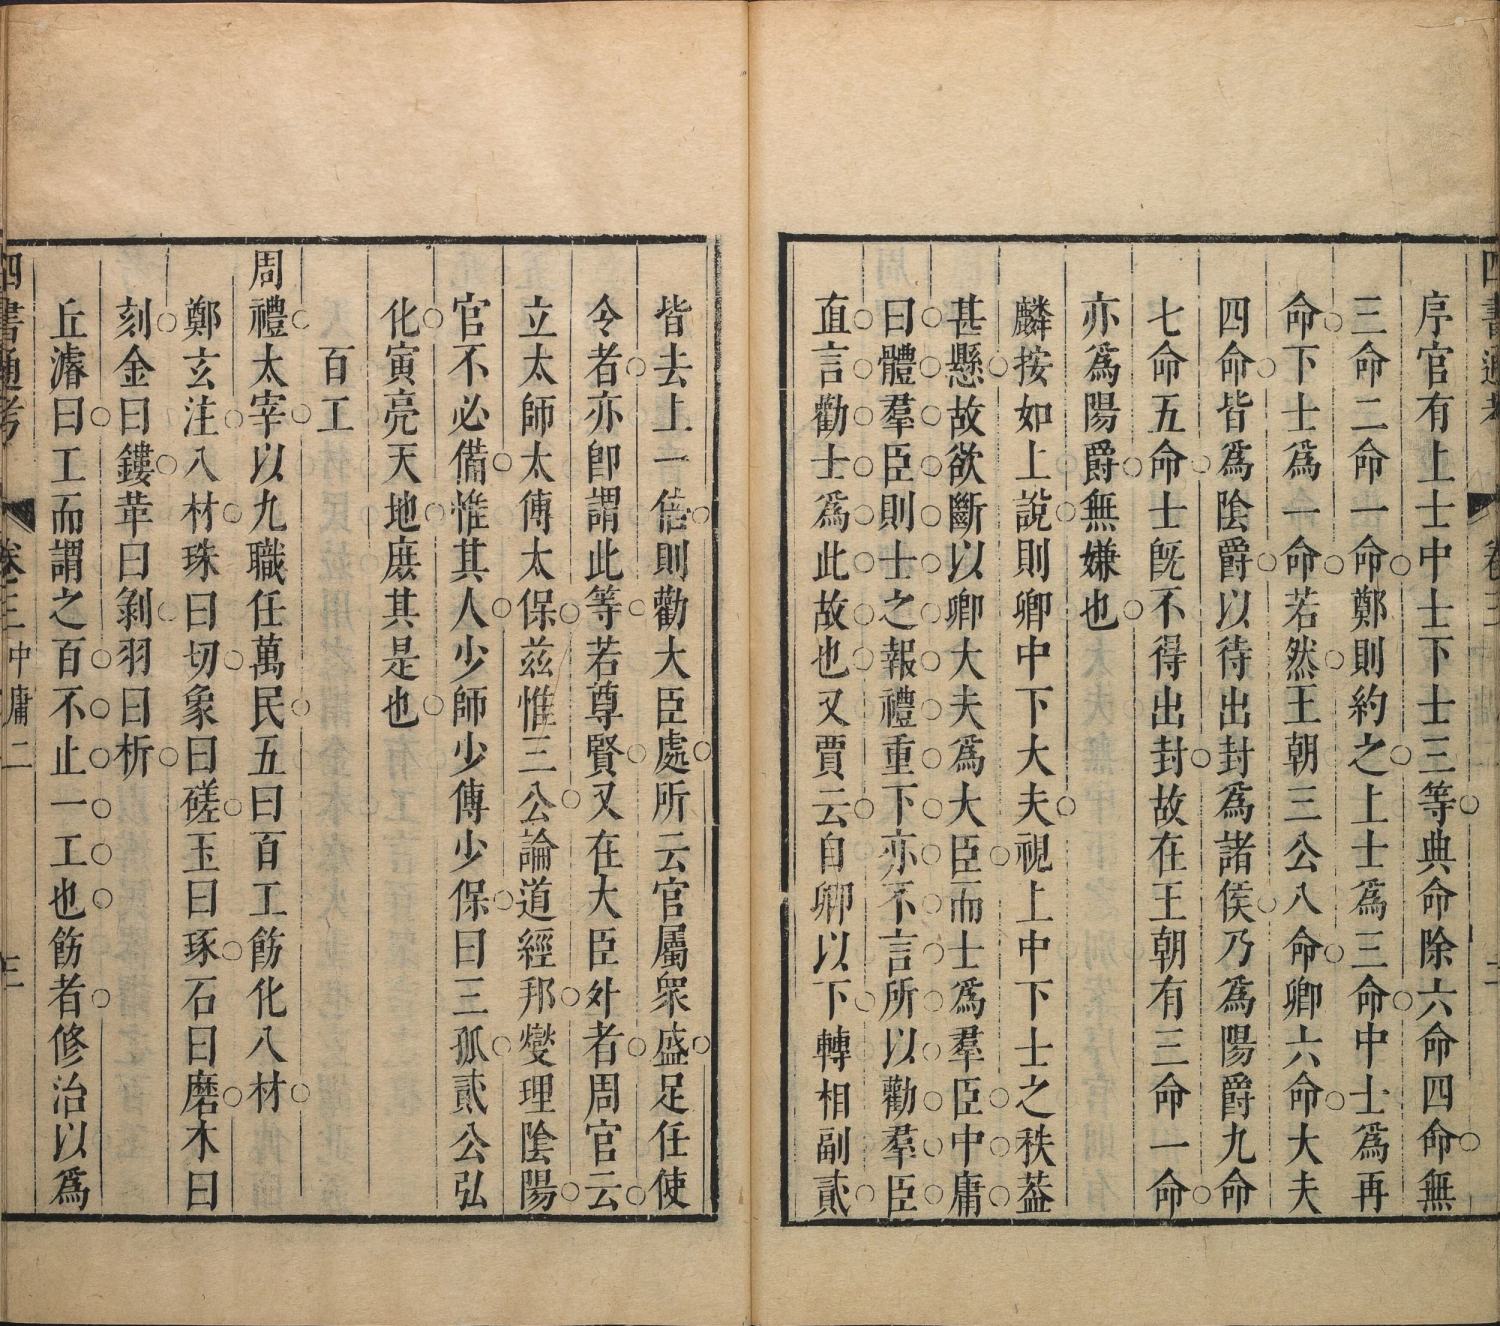 四書通考 卷三
序官有上士中士下士三等典命除六命四命無
三命二命一命鄭則約之上士爲三命中士爲再
命下士爲一命若然王朝三公八命卿六命大夫
四命皆爲陰爵以待出封爲諸侯乃爲陽爵九命
七命五命士旣不得出封故在王朝有三命一命
亦爲陽爵無嫌也
麟按如上說則卿中下大夫視上中下士之秩葢
甚懸故欲斷以卿大夫爲大臣而士爲羣臣中庸
曰體羣臣則士之報禮重下亦不言所以勸羣臣
直言勸士爲此故也又賈云自卿以下轉相副貳
皆去上一倍則勸大臣處所云官屬衆盛足任使
令者亦卽謂此等若尊賢又在大臣外者周官云
立太師太傅太保茲惟三公論道經邦燮理陰陽
官不必備惟其人少師少傅少保曰三孤貳公弘
化寅亮天地庶其是也
百工
周禮太宰以九職任萬民五曰百工飭化八材
鄭玄注八材珠曰切象曰磋玉曰琢石曰磨木曰
刻金曰鏤革曰剝羽曰析
丘濬曰工而謂之百不止一工也飭者修治以爲
四書通考 卷三 中庸二 三